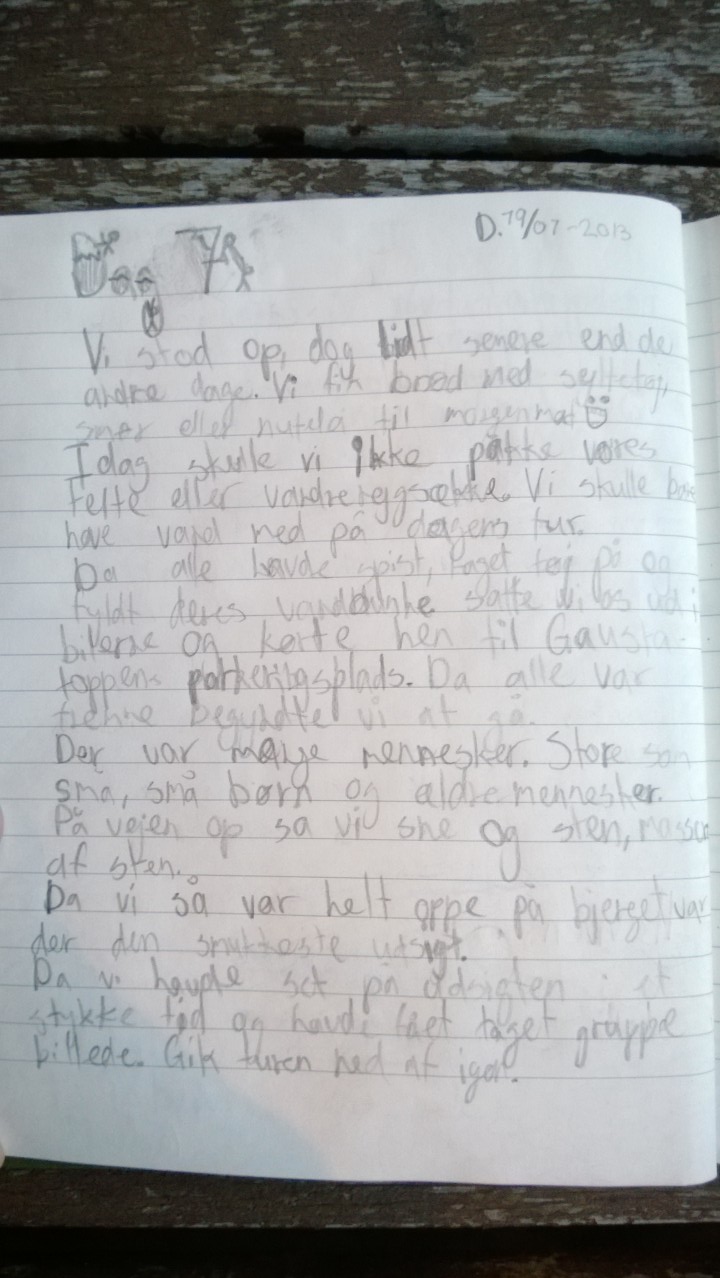 Dag 7
D. 19/07-2013
Vi stod op, dog lidt senere end de
andre dage. Vi fik brød med syltetøj,
smør eller nutela til morgenmat
Idag skulle vi ikke pakke vores
telte eller vandrereygsække. Vi skulle bare
have vand med på dagens tur.
Da alle havde spist, taget tøj på og
fyldt deres vanddunke satte vi os ud i
bilerne og kørte hen til Gausta-
toppens parkeringsplads. Da alle var
begyndte vi at gå.
Der var mange mennesker. Store som
små, små børn og ældre mennesker.
På vejen op så vi sne og sten, masser
af sten.
Da vi så var helt oppe på bjerget var
der den smukkeste udsigt.
Da vi havde set på udsigten i et
stykke tid og havde fået taget gruppe
billede. Gik turen ned af igen.